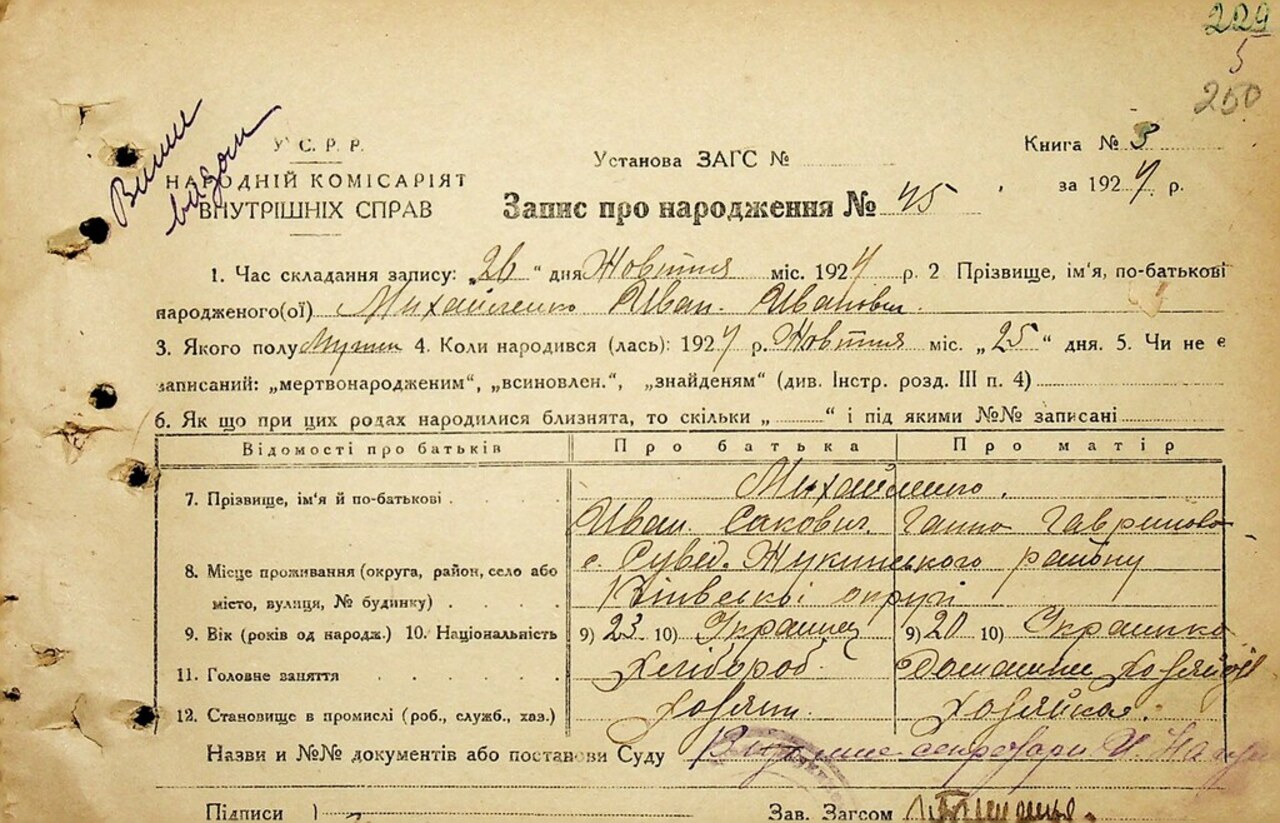 229
5
250
Випис
видан
У С. Р. Р.
НАРОДНІЙ КОМІСАРІЯТ
ВНУТРІШНІХ СПРАВ
Установа ЗАГС №
Книга № 3
за 1924 р.
Запис про народження № 45
1. Час складання запису: „26“ дня Жовтня міс. 1924 р. 2 Прізвище, ім'я, по-батькові
народженого(ої) Михайленко Иван. Иванович.
3. Якого полу Мужик 4. Коли народився (лась): 1924 р. Жовтня міс. „25“ дня. 5. Чи не є
записаний: „мертвонародженим“, „всиновлен.“, „знайденям“ (див. Інстр. розд. III п. 4)
6. Як що при цих родах народилися близнята, то скільки „ “ і під якими №№ записані
Відомості про батьків Про батька Про матір
7. Прізвище, ім'я й по-батькові Михайленко.
Иван. Сакович. Ганна Гаврилова
8. Місце проживання (округа, район, село або с. Сувид. Жукинського району
місто, вулиця, № будинку) Київської округі
9. Вік (років од народж.) 10. Національність 9) 23 10) Украинец 9) 20 10) Украинка
11. Головне заняття Хлібороб. Домашни Хозяйст
12. Становище в промислі (роб., служб., хаз.) Хозяин. Хозяйка.
Назви и №№ документів або постанови Суду секретари
Підписи Зав. Загсом